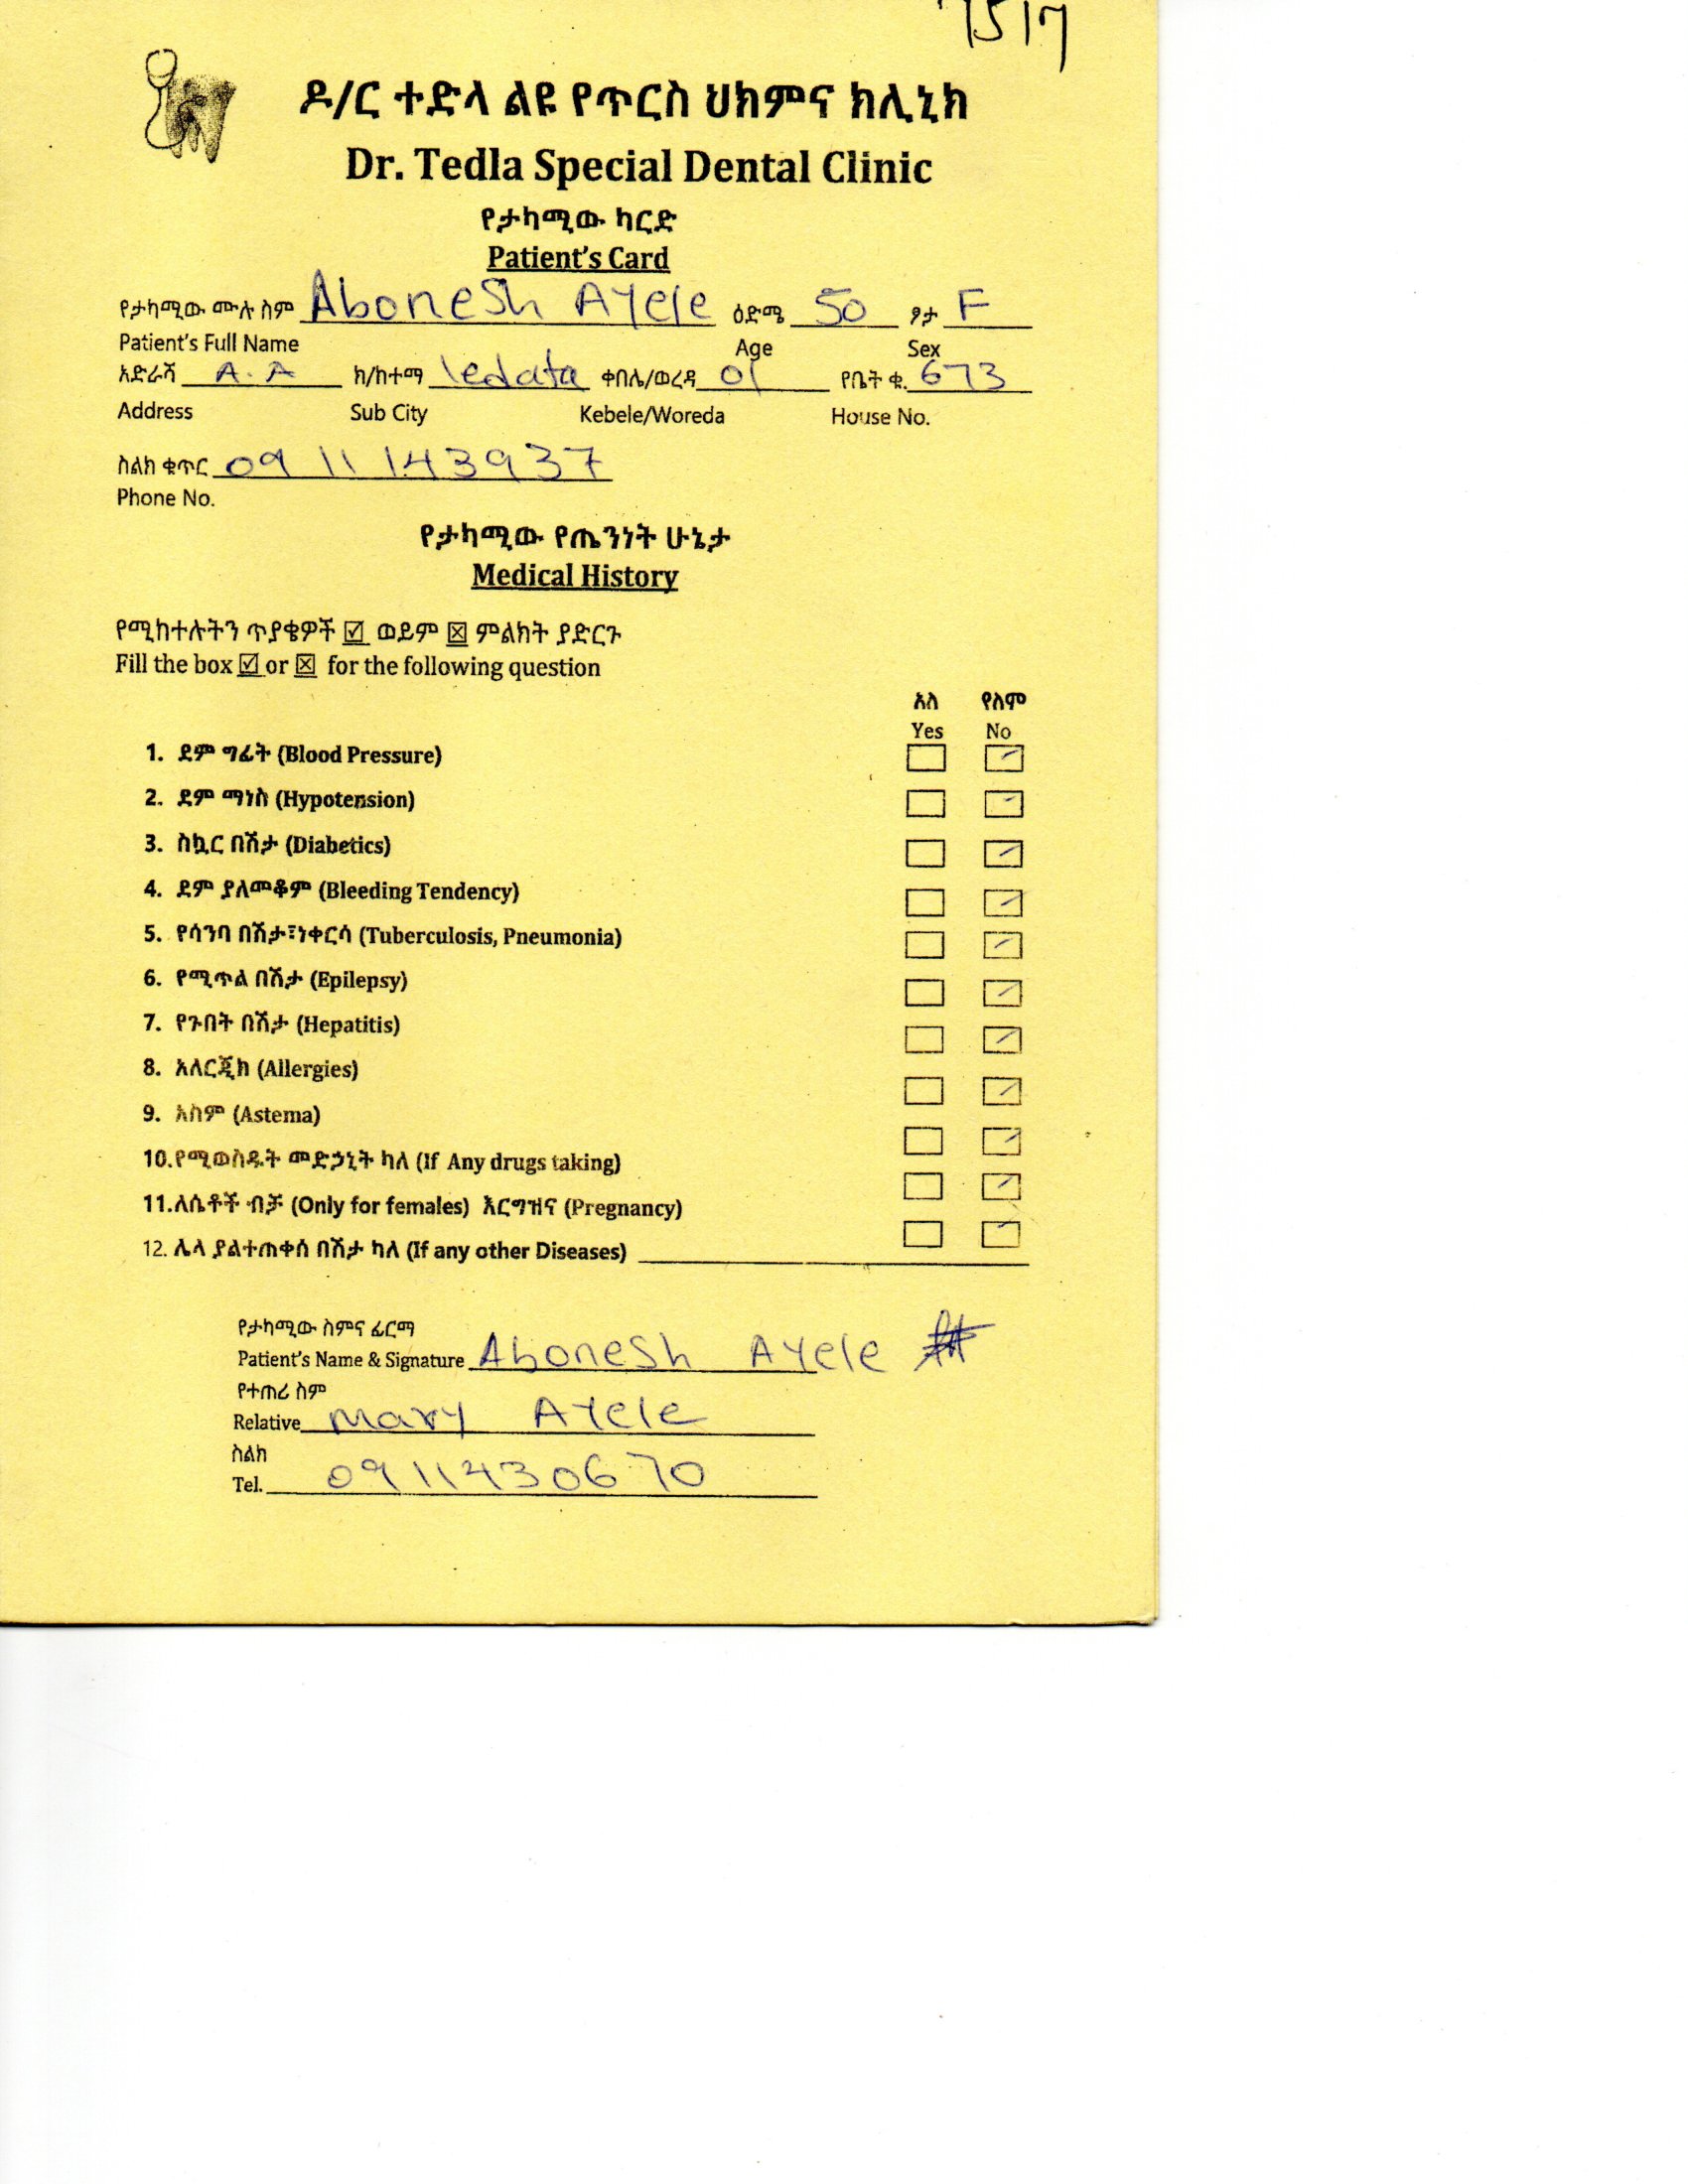 7517
ዶ/ር ተድላ ልዩ የጥርስ ህክምና ክሊኒክ
Dr. Tedla Special Dental Clinic
የታካሚው ካርድ
Patient's Card
የታካሚው ሙሉ ስም Abonesh Ayele ዕድሜ 50 ፆታ F
Patient's Full Name Age Sex
አድራሻ A.A ክ/ከተማ ledata ቀበሌ/ወረዳ 01 የቤት ቁ. 673
Address Sub City Kebele/Woreda House No.
ስልክ ቁጥር 09 11 143937
Phone No.
የታካሚው የጤንነት ሁኔታ
Medical History
የሚከተሉትን ጥያቄዎች ☑ ወይም ☒ ምልክት ያድርጉ
Fill the box ☑ or ☒ for the following question
አለ የለም
Yes No
1. ደም ግፊት (Blood Pressure)
2. ደም ማነስ (Hypotension)
3. ስኳር በሽታ (Diabetics)
4. ደም ያለመቆም (Bleeding Tendency)
5. የሳንባ በሽታ፣ነቀርሳ (Tuberculosis, Pneumonia)
6. የሚጥል በሽታ (Epilepsy)
7. የጉበት በሽታ (Hepatitis)
8. አለርጂክ (Allergies)
9. አስም (Astema)
10.የሚወስዱት መድኃኒት ካለ (If Any drugs taking)
11.ለሴቶች ብቻ (Only for females) እርግዝና (Pregnancy)
12. ሌላ ያልተጠቀሰ በሽታ ካለ (If any other Diseases)
የታካሚው ስምና ፊርማ
Patient's Name & Signature Abonesh Ayele
የተጠሪ ስም
Relative Mary Ayele
ስልክ
Tel. 0911430670